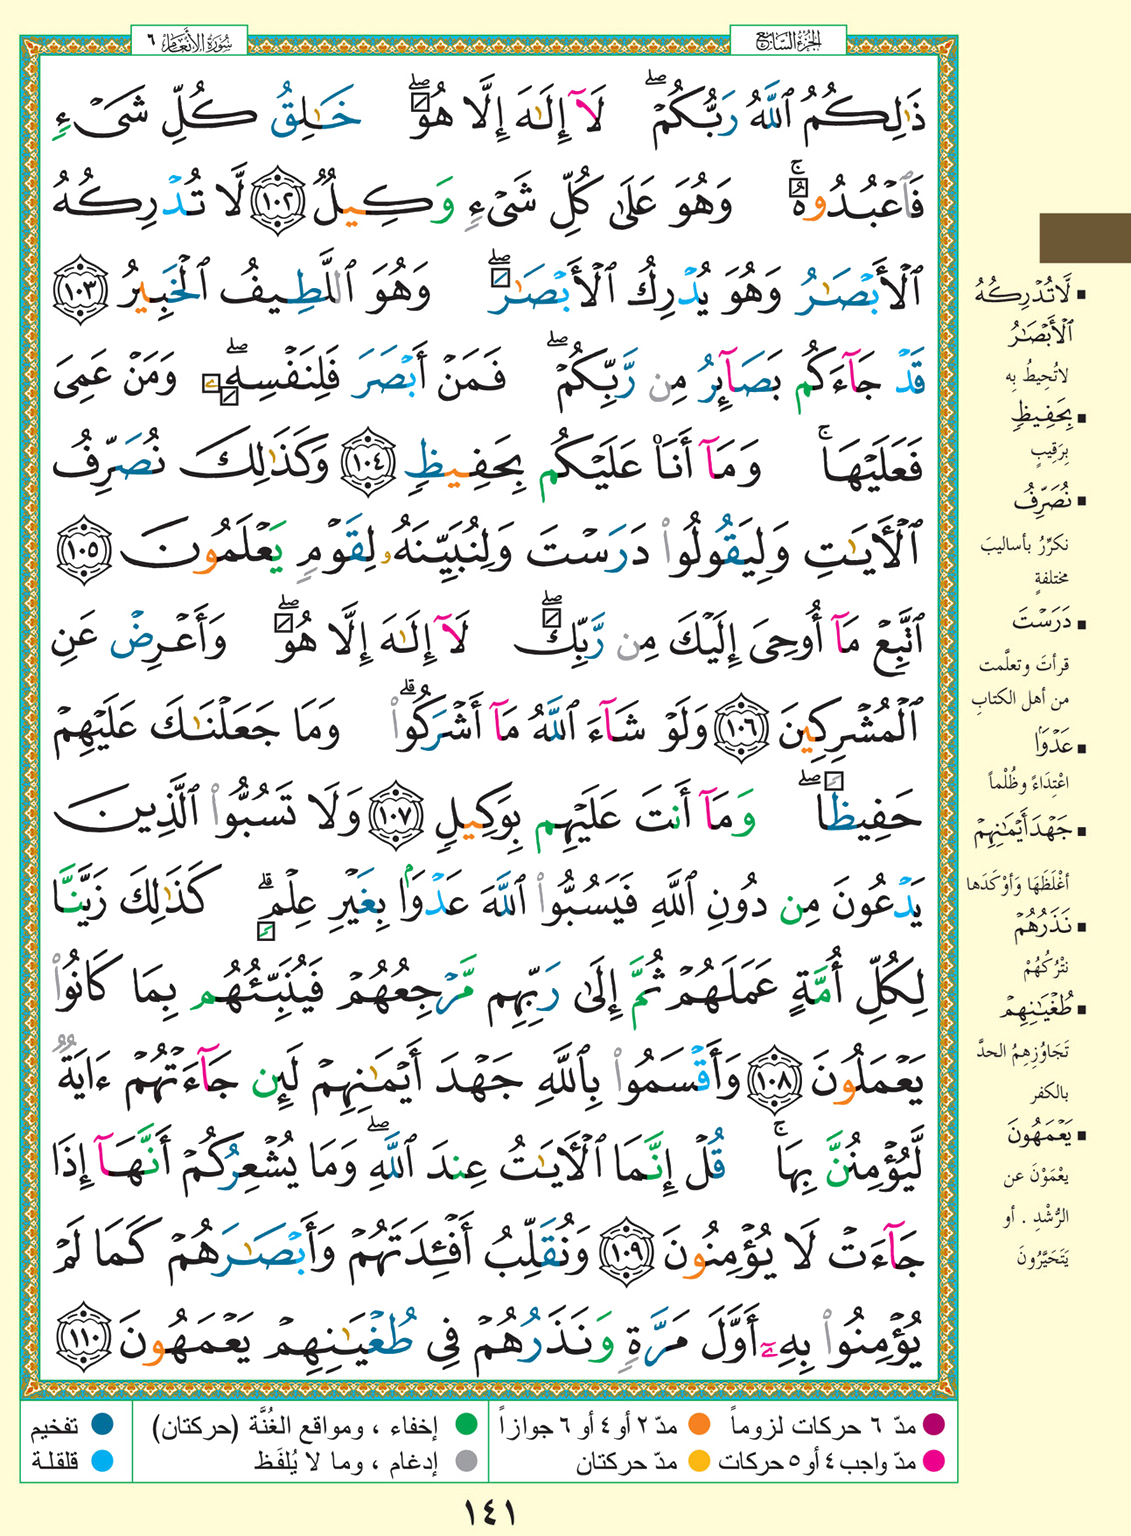 الجزء السابع
سورة الأنعام ٦
ذَٰلِكُمُ ٱللَّهُ رَبُّكُمْ ۖ لَآ إِلَٰهَ إِلَّا هُوَ ۖ خَٰلِقُ كُلِّ شَىْءٍ
فَٱعْبُدُوهُ ۚ وَهُوَ عَلَىٰ كُلِّ شَىْءٍ وَكِيلٌ ١٠٢ لَّا تُدْرِكُهُ
ٱلْأَبْصَٰرُ وَهُوَ يُدْرِكُ ٱلْأَبْصَٰرَ ۖ وَهُوَ ٱللَّطِيفُ ٱلْخَبِيرُ ١٠٣
قَدْ جَآءَكُم بَصَآئِرُ مِن رَّبِّكُمْ ۖ فَمَنْ أَبْصَرَ فَلِنَفْسِهِۦ ۖ وَمَنْ عَمِىَ
فَعَلَيْهَا ۚ وَمَآ أَنَا۠ عَلَيْكُم بِحَفِيظٍ ١٠٤ وَكَذَٰلِكَ نُصَرِّفُ
ٱلْأَيَٰتِ وَلِيَقُولُوا۟ دَرَسْتَ وَلِنُبَيِّنَهُۥ لِقَوْمٍ يَعْلَمُونَ ١٠٥
ٱتَّبِعْ مَآ أُوحِىَ إِلَيْكَ مِن رَّبِّكَ ۖ لَآ إِلَٰهَ إِلَّا هُوَ ۖ وَأَعْرِضْ عَنِ
ٱلْمُشْرِكِينَ ١٠٦ وَلَوْ شَآءَ ٱللَّهُ مَآ أَشْرَكُوا۟ ۗ وَمَا جَعَلْنَٰكَ عَلَيْهِمْ
حَفِيظًا ۖ وَمَآ أَنتَ عَلَيْهِم بِوَكِيلٍ ١٠٧ وَلَا تَسُبُّوا۟ ٱلَّذِينَ
يَدْعُونَ مِن دُونِ ٱللَّهِ فَيَسُبُّوا۟ ٱللَّهَ عَدْوًۢا بِغَيْرِ عِلْمٍ ۗ كَذَٰلِكَ زَيَّنَّا
لِكُلِّ أُمَّةٍ عَمَلَهُمْ ثُمَّ إِلَىٰ رَبِّهِم مَّرْجِعُهُمْ فَيُنَبِّئُهُم بِمَا كَانُوا۟
يَعْمَلُونَ ١٠٨ وَأَقْسَمُوا۟ بِٱللَّهِ جَهْدَ أَيْمَٰنِهِمْ لَئِن جَآءَتْهُمْ ءَايَةٌ
لَّيُؤْمِنُنَّ بِهَا ۚ قُلْ إِنَّمَا ٱلْأَيَٰتُ عِندَ ٱللَّهِ ۖ وَمَا يُشْعِرُكُمْ أَنَّهَآ إِذَا
جَآءَتْ لَا يُؤْمِنُونَ ١٠٩ وَنُقَلِّبُ أَفْـِٔدَتَهُمْ وَأَبْصَٰرَهُمْ كَمَا لَمْ
يُؤْمِنُوا۟ بِهِۦٓ أَوَّلَ مَرَّةٍ وَنَذَرُهُمْ فِى طُغْيَٰنِهِمْ يَعْمَهُونَ ١١٠
لَّا تُدْرِكُهُ
ٱلْأَبْصَٰرُ
لا تُحِيطُ بِه
بِحَفِيظٍ
بِرَقِيبٍ
نُصَرِّفُ
نكرِّرُ بأساليبَ
مختلفةٍ
دَرَسْتَ
قرأتَ وتعلَّمت
من أهل الكتابِ
عَدْوًا
اعْتِدَاءً وظُلْماً
جَهْدَ أَيْمَٰنِهِمْ
أغْلَظَهَا وَأوْكَدَها
نَذَرُهُمْ
نتْرُكُهُمْ
طُغْيَٰنِهِمْ
تَجَاوُزِهِمُ الحدَّ
بالكفر
يَعْمَهُونَ
يعْمَوْنَ عن
الرُّشْدِ . أو
يَتَحَيَّرُونَ
مدّ ٦ حركات لزوماً
مدّ ٢ أو ٤ أو ٦ جوازاً
إخفاء ، ومواقع الغُنَّة (حركتان)
تفخيم
مدّ واجب ٤ أو ٥ حركات
مدّ حركتان
إدغام ، وما لا يُلفَظ
قلقلة
١٤١